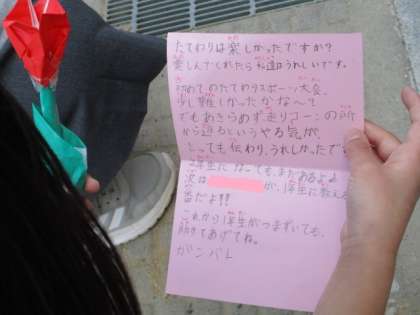 たてわりは楽しかったですか?
楽しんでくれたら私達はうれしいです。
初めてのたてわりスポーツ大会、
少し難しかったかな~?
でもあきらめず走りコーンの所
から辺るというやる気が、
とっても伝わり、うれしかったで
2年生になっても、またあるよ♪
次は が、1年生に教える
番だよ!!
これから1年生がつまずいても、
助けてあげてね。
ガンバレ